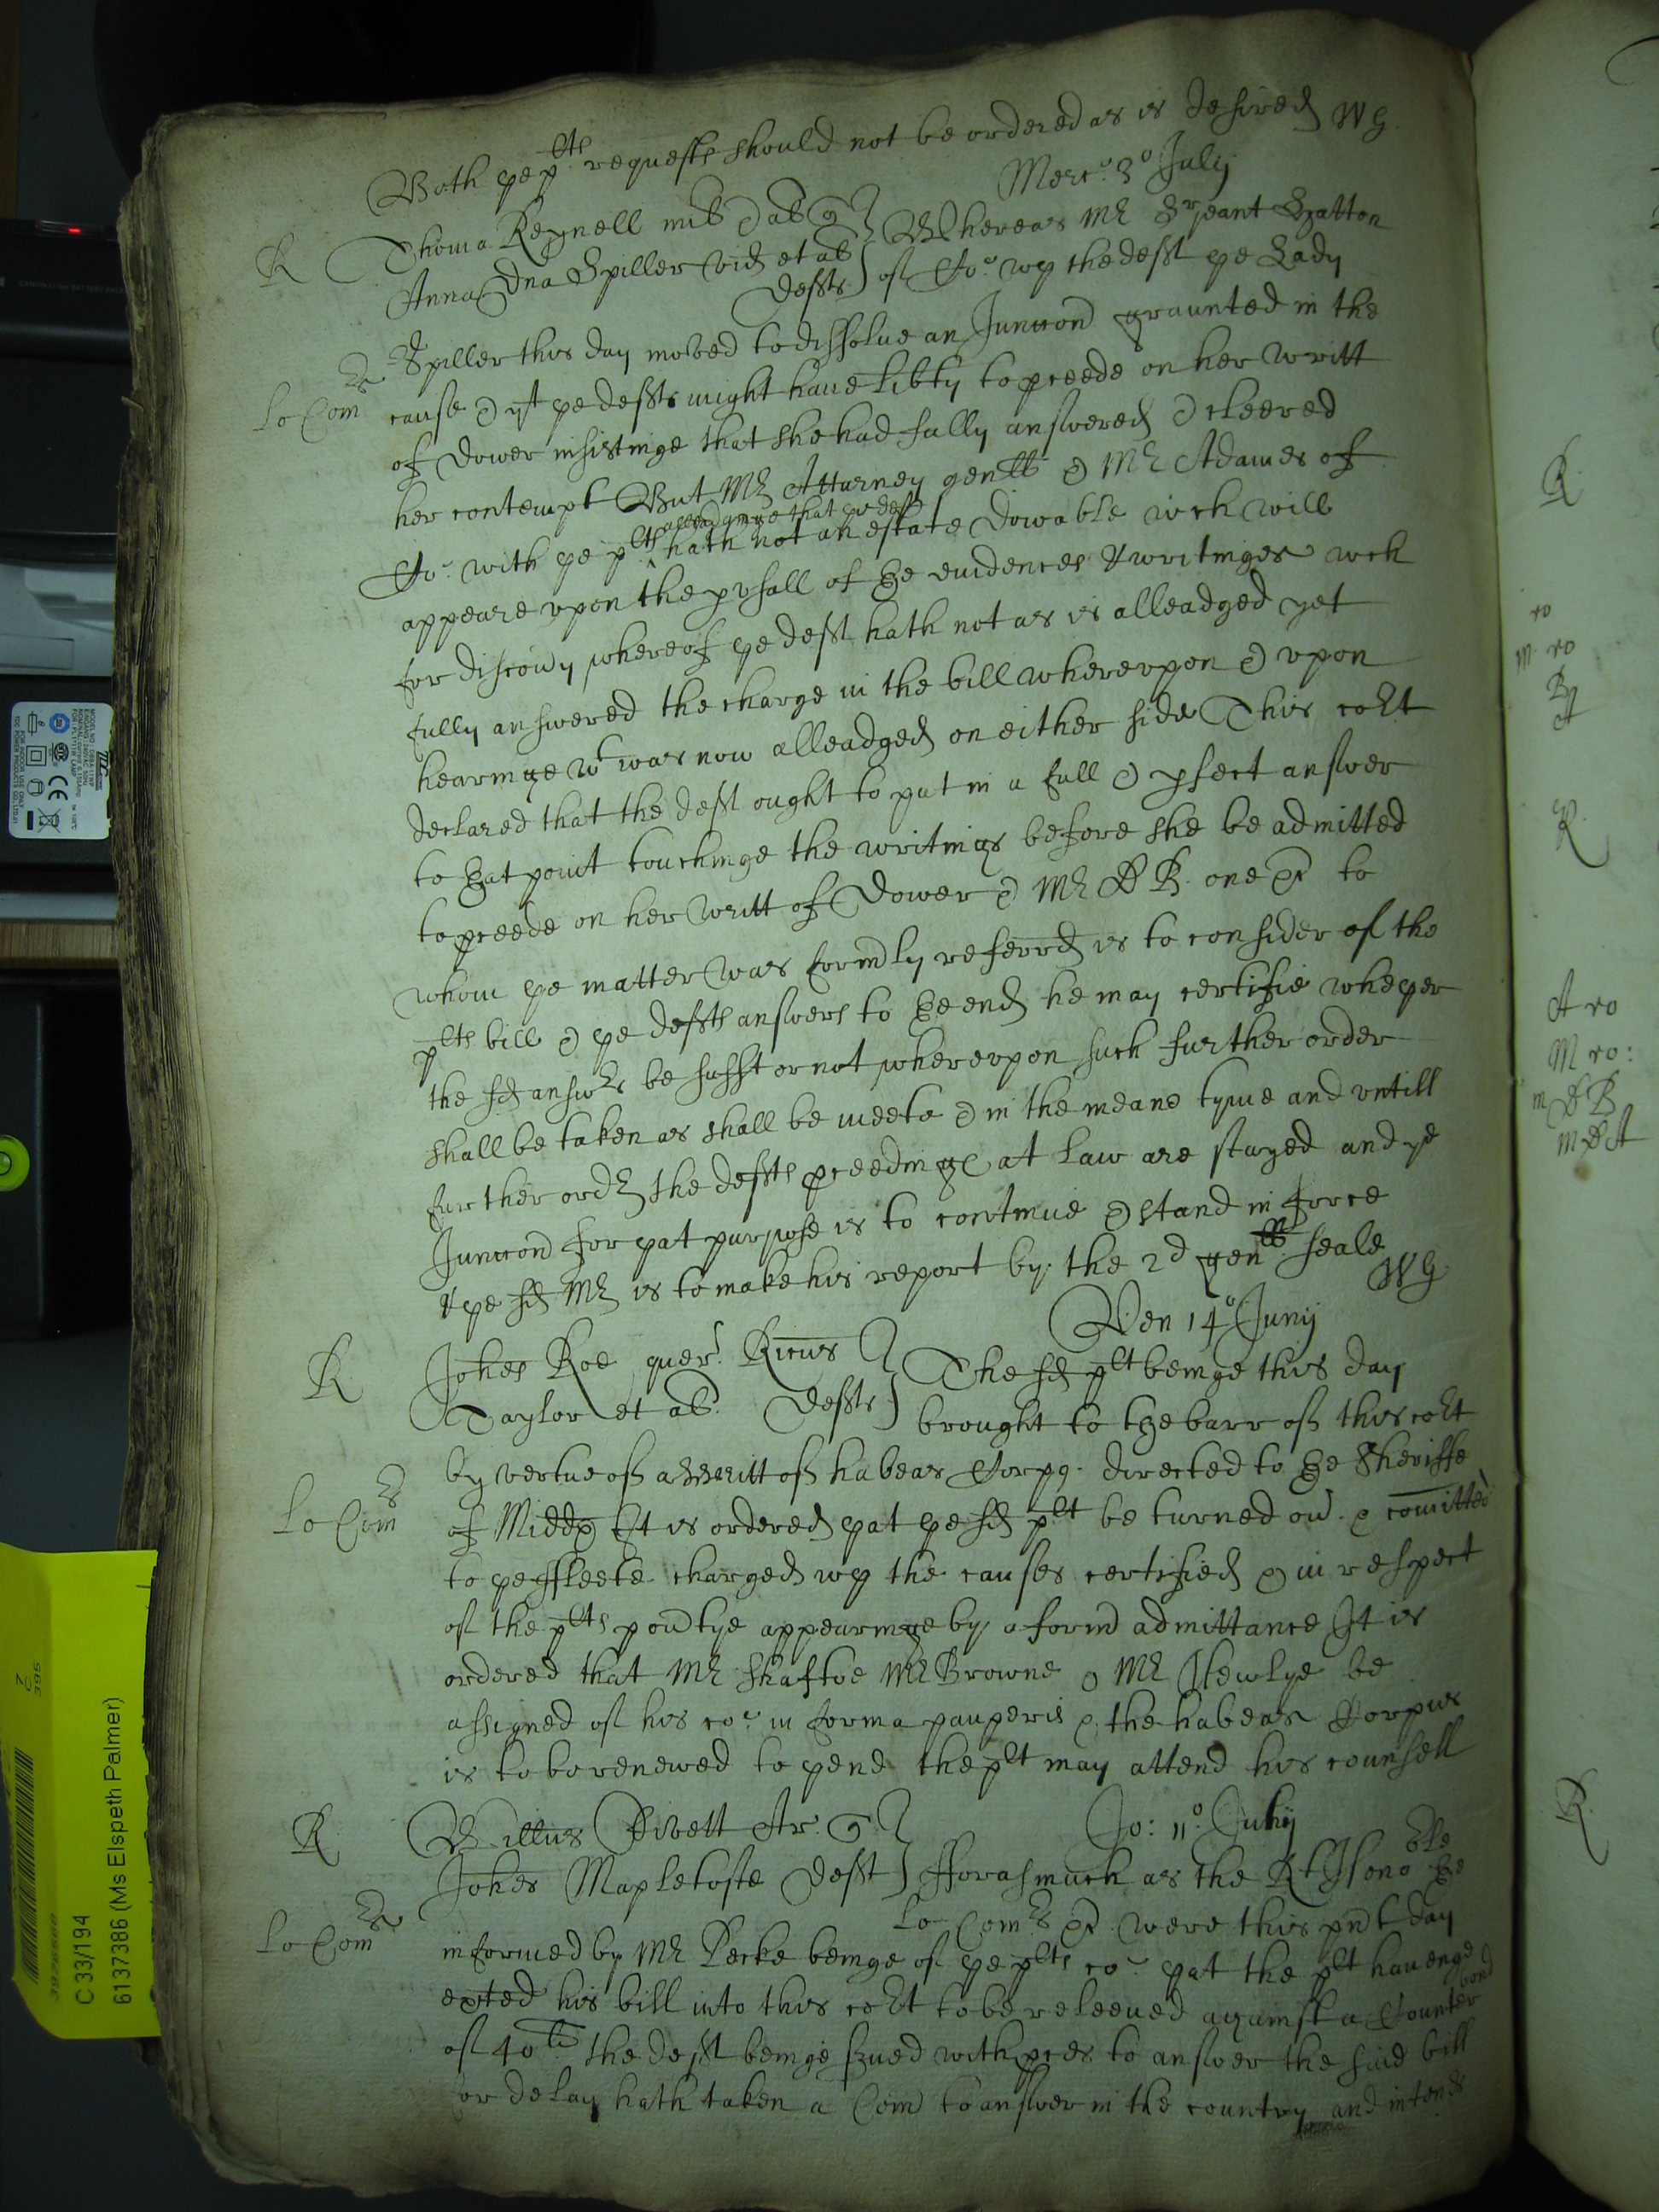 Both ye plts requests should not be ordered as is desired WG
Merc: 3o July
R Thoma Reynell mil & al q
Anna Dna Spiller vid et al defts
Whereas Mr Srjeant Hatton
of Co: wth the deft ye Lady
Lo Comrs Spiller this day moved to dissolue an Junccon graunted in the
cause & yt ye defts might haue libty to pceede on her writt
of Dower insistinge that she had fully answered & cleered
her contempt But Mr Atturney genll & Mr Adames of
alleadginge that ye deft
Co: with ye plts hath not an estate dowable wch will
appeare vpon the pvsall of the euidences & writinges wch
for discouy whereof ye deft hath not as is alleadged yet
fully answered the charge in the bill wherevpon & vpon
hearinge wt was now alleadged on either side This cort
declared that the deft ought to put in a full & pfect answer
to that point touchinge the writings before she be admitted
to pceede on her writt of Dower & Mr D B. one &c to
whom ye matter was formly referrd is to consider of the
plts bill & ye defts answers to the end he may certifie whether
the sd answrs be sufft or not wherevpon such further order
shall be taken as shall be meete & in the meane tyme and vntill
further ordr the defts pceedinge at law are stayed and ye
Junccon for yat purpose is to continue & stand in force
& ye sd Mr is to make his report by the 2d genll seale
WG
Ven 14o Junij
R Johes Roe quer. Ricus
Taylor et al. defts
The sd plt beinge this day
brought to the barr of this cort
by vertue of a writt of habeas Corpq directed to the Sheriffe
Lo Comrs of Middx It is ordered yat ye sd plt be turned ou. & comitted
to ye ffleete charged wth the causes certified & in respect
of the plts poutye appearinge by a form admittance It is
ordered that Mr Shaftoe Mr Browne & Mr Hewlye be
assigned of his co: in forma pauperis & the habeas Corpus
is to be renewed to yend the plt may attend his counsell
R Willus Divett Ar q
Jo: 11o Julij
Johes Mapletofte deft
fforasmuch as the Rt Honoble the
Lo Comrs &c were this pnt day
Lo Comrs informed by Mr Pecke beinge of ye plts co: yat the plt hauenge
exted his bill into this cort to be releeued against a Counter bond
of 40ll the deft beinge sued with pces to answer the said bill
for delay hath taken a Com to answer in the country and intends
R
ro
m ro
B
A
R
A ro
M ro:
m D B
m D A
R
MODEL NO
FOR INDOOR USE ONLY
CE
C 33/194
6137386 (Ms Elspeth Palmer)